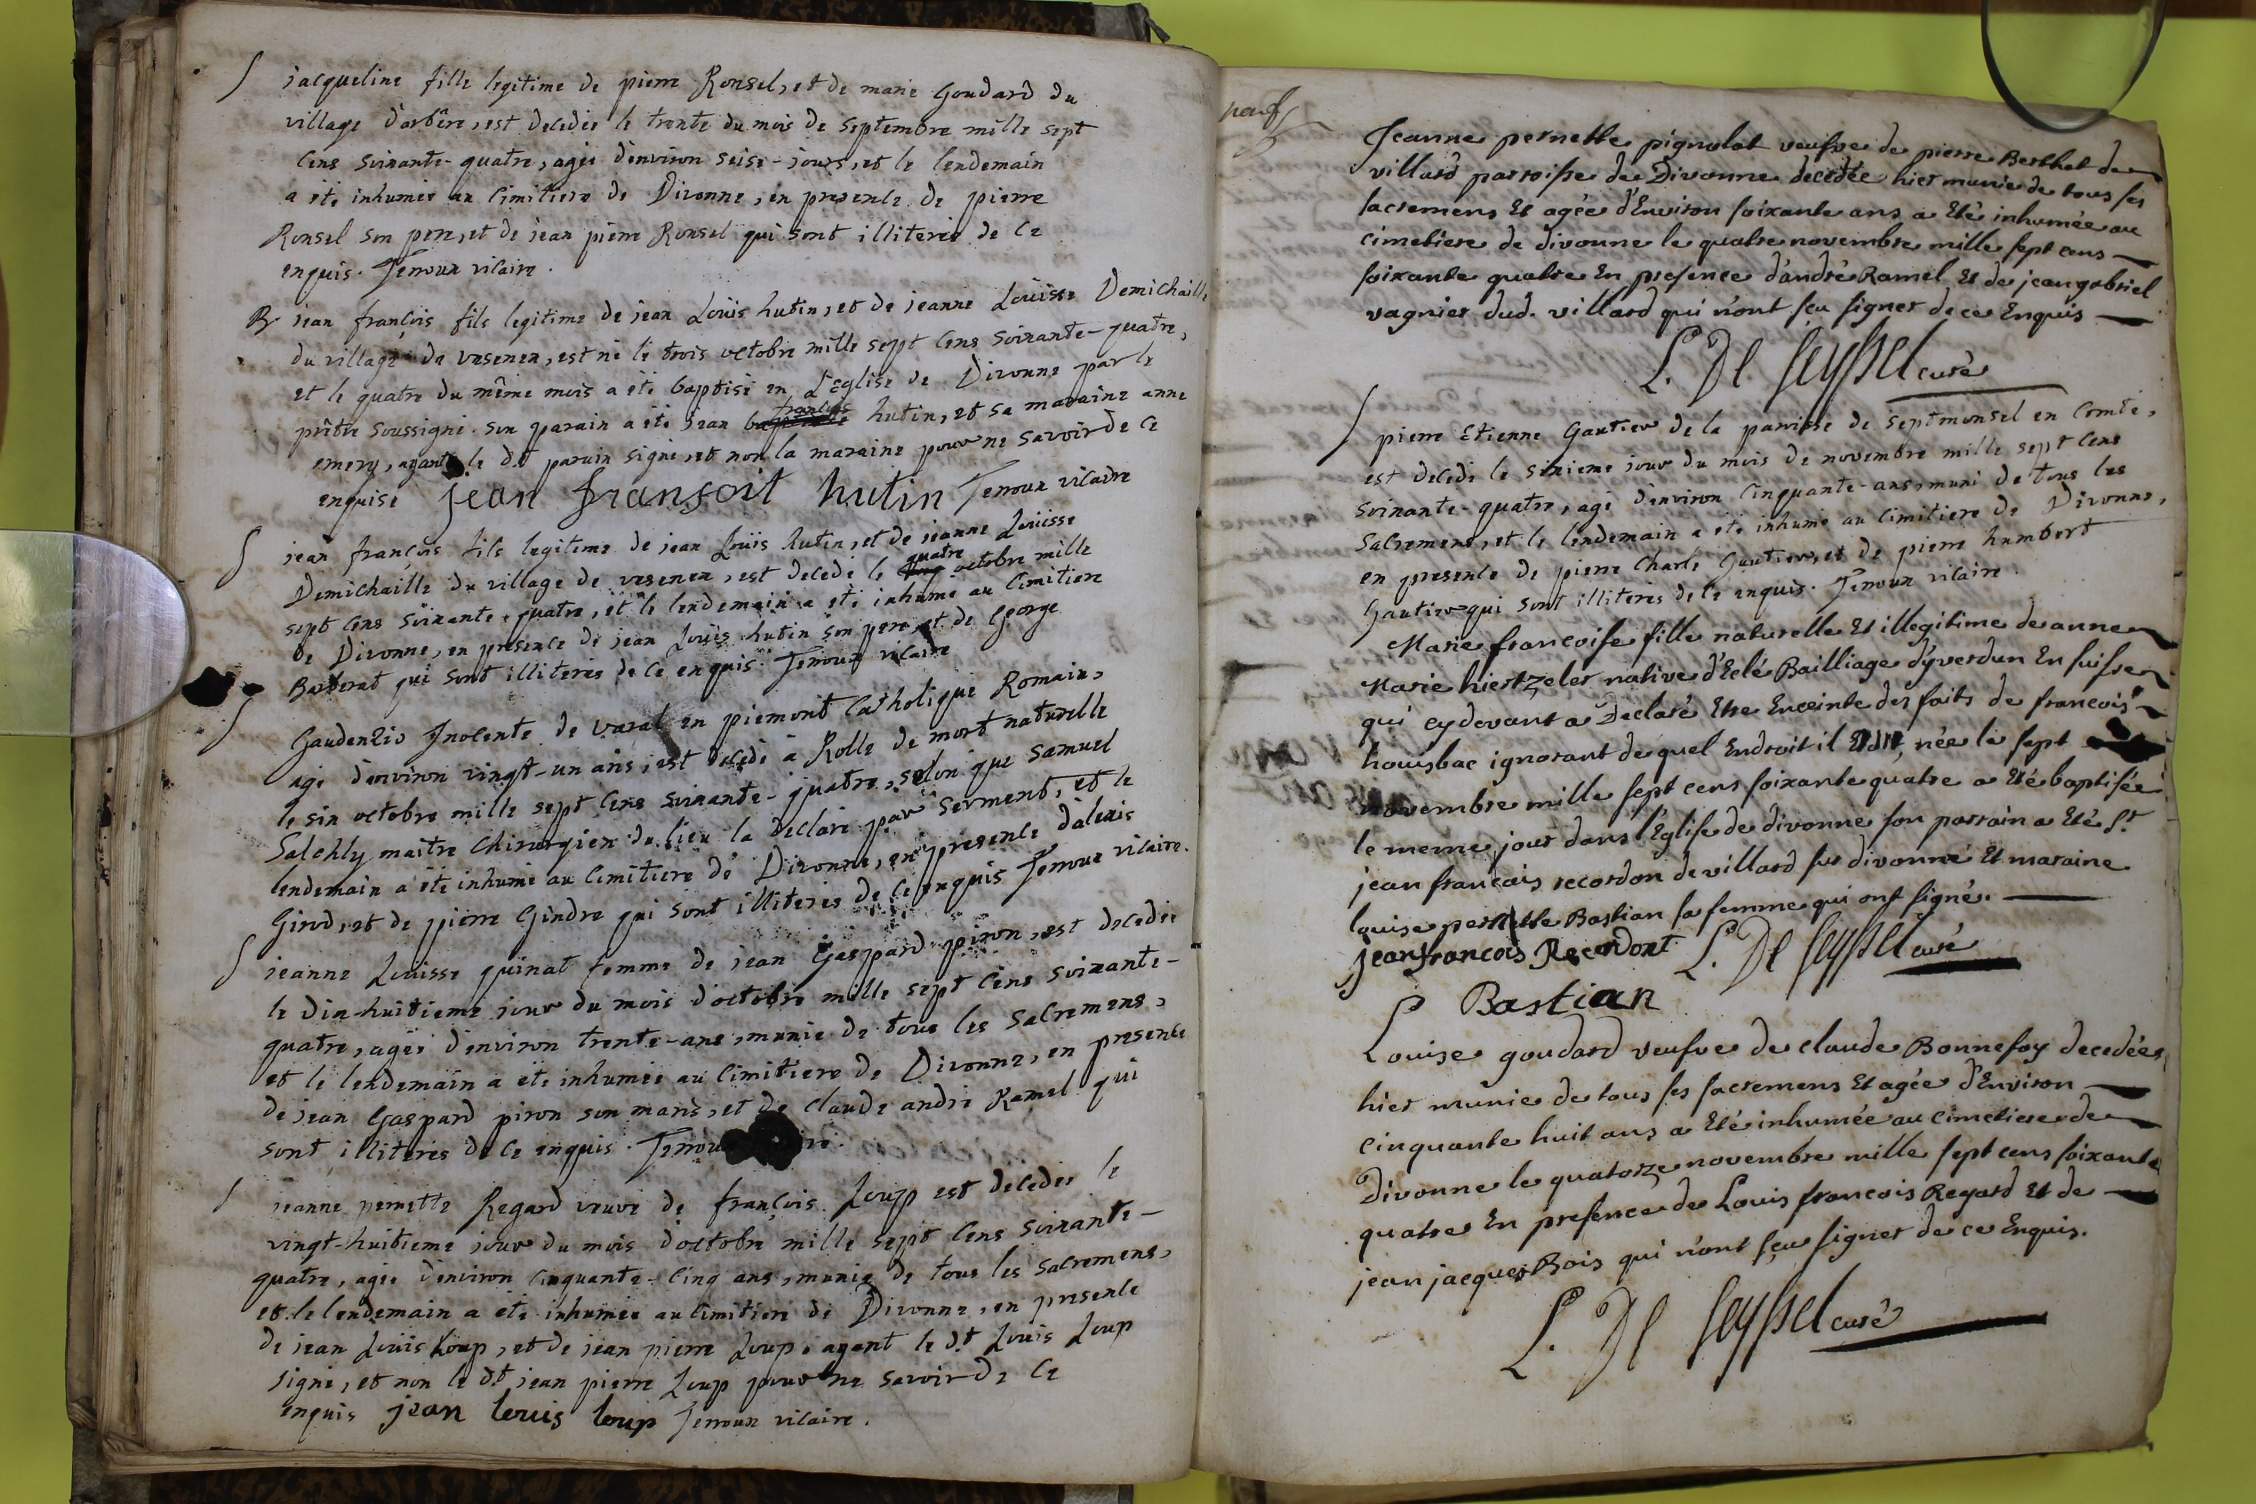 S jacqueline fille legitime de pierre Ronsel, et de marie Goudard du
village d'arbêre, est decedée le trente du mois de septembre mille sept
cens soixante-quatre, agée d'environ seise-jours, et le lendemain
a eté inhumée au cimitiere de Divonne, en presence de pierre
Ronsel son pere, et de jean pierre Ronsel qui sont illiterés de ce
enquis. Jenoux vicaire.
B jean françois fils legitime de jean Loüis hutin, et de jeanne Loüisse Demichaille
du village de vesenex, est né le trois octobre mille sept cens soixante-quatre,
et le quatre du même mois a été baptisé en L'Eglise de Divonne par le
prêtre soussigné. son parain a été jean françois hutin, et sa maraine anne
emery, ayant le dt parain signé, et non la maraine pour ne savoir de ce
enquise jean fransoit hutin Jenoux vicaire
S jean françois fils legitime de jean Loüis hutin, et de jeanne Loüisse
Demichaille du village de vesenex, est decede le quatre octobre mille
sept cens soixante-quatre, et le lendemain a eté inhumé au cimitiere
de Divonne, en presence de jean Loüis hutin son pere, et de George
Barberat qui sont illiterés de ce enquis. Jenoux vicaire
S Gaudenzio Inocente de varal en piemont Catholique Romain,
agé d'environ vingt-un ans, est decedé à Rolle de mort naturelle
le six octobre mille sept cens soixante-quatre, selon que samuel
Salchly maitre chirurgien du lieu la declaré par serment, et le
lendemain a été inhumé au cimitiere de Divonne, en presence d'alexis
Girod, et de pierre Gindre qui sont illiterés de ce enquis Jenoux vicaire.
S jeanne Louisse quinat femme de jean Gaspard piron, est decedée
le dix-huitieme jour du mois d'octobre mille sept cens soixante-
quatre, agée d'environ trente-ans, munie de tous les sacremens,
et le lendemain a eté inhumée au cimitiere de Divonne, en presence
de jean Gaspard piron son mari, et de claude andré Ramel qui
sont illiterés de ce enquis.
S jeanne pernette Regard veuve de françois Loup est decedée le
vingt-huitieme jour du mois d'octobre mille sept cens soixante-
quatre, agée d'environ cinquante-cinq ans, munie de tous les sacremens,
et le lendemain a eté inhumée au cimitiere de Divonne, en presence
de jean Loüis Loup, et de jean pierre Loup, ayant le dt Louis Loup
signé, et non le dt jean pierre Loup pour ne savoir de ce
enquis jean louis loup Jenoux vicaire.
neuf
Jeanne pernette pignolat veufve de pierre Berthet de
villard parroisse de Divonne decedée hier munie de tous ses
sacremens Et agée d'Environ soixante ans a Eté inhumée au
cimetiere de divonne le quatre novembre mille sept cens
soixante quatre En presence d'andré Ramel Et de jean gabriel
vagnier dud. villard qui n'ont sçu signer de ce Enquis
L. De Seyssel curé
S pierre Etienne Gautier de la paroisse de septmonsel en Comté,
est decedé le sixieme jour du mois de novembre mille sept cens
soixante-quatre, agé d'environ cinquante-ans, muni de tous les
sacremens, et le lendemain a eté inhumé au cimitiere de Divonne,
en presence de pierre Charle Gautier, et de pierre humbert
Gautier qui sont illiterés de ce enquis. Jenoux vicaire.
Marie francoise fille naturelle Et illegitime de anne
Marie hiertzeler native d'Eclé Bailliage d'yverdun En suisse
qui cydevant a Declaré Etre Enceinte des faits de francois
housbac ignorant de quel Endroit il Est, née le sept
novembre mille sept cens soixante quatre a Eté baptisée
le meme jour dans l'Eglise de divonne son parrain a Eté Sr.
jean francais recordon de villard sur divonne Et maraine
louise pernette Bastian sa femme qui ont signés.
jean francois Recordont L. De Seyssel curé
L Bastian
Louise goudard veufve de claude Bonnefoy decedée
hier munie de tous ses sacremens Et agée d'Environ
cinquante huit ans a Eté inhumée au cimetiere de
Divonne le quatorze novembre mille sept cens soixante
quatre En presence de Louis francois Regard Et de
jean jacques Bois qui n'ont sçu signer de ce Enquis.
L. De Seyssel curé